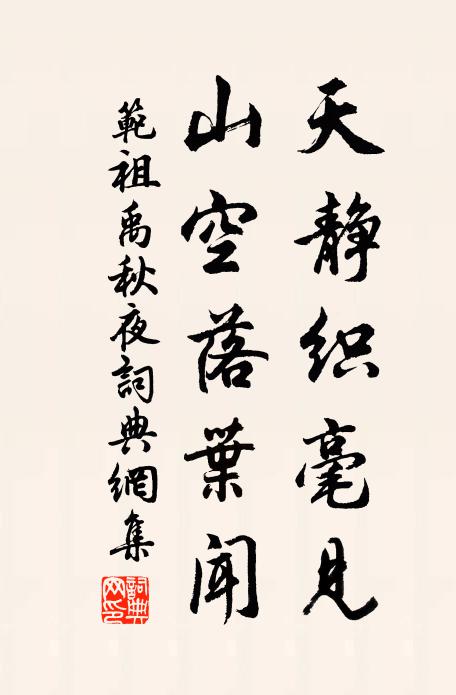 天静织毫見
山空落葉聞
範祖禹秋夜詞典網集
詞典网印